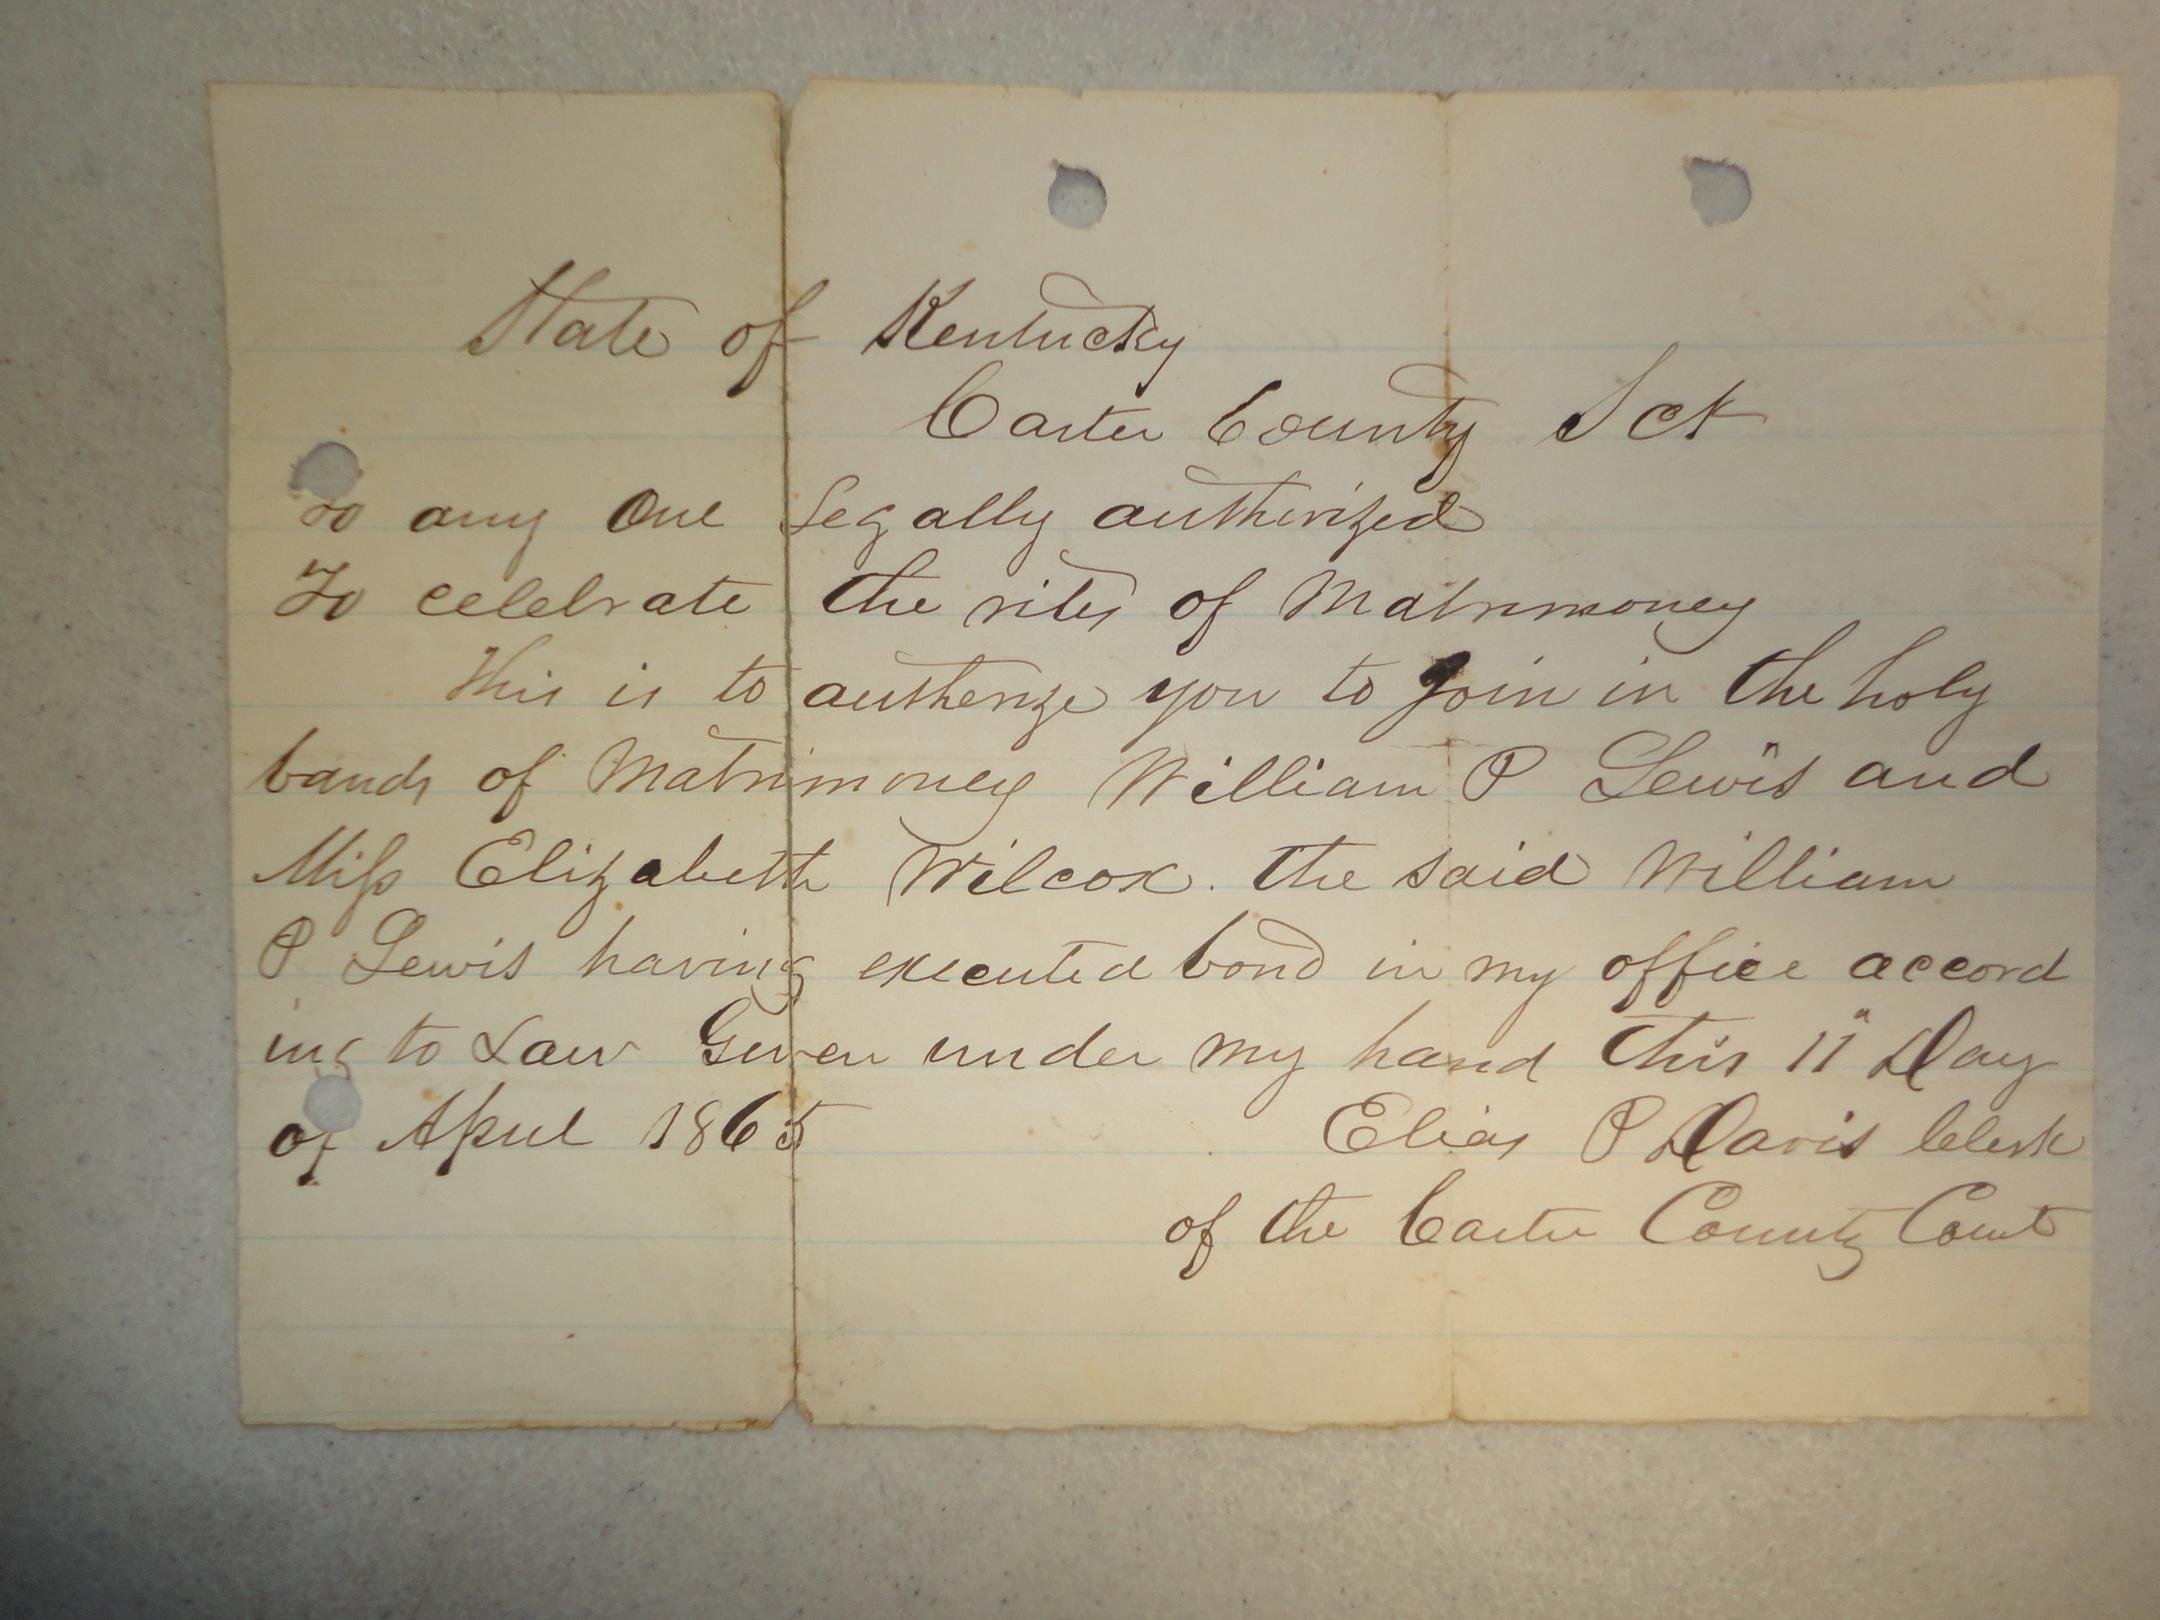 State of Kentucky
Carter County Sct
To any One Legally authorized
To celebrate the rites of Matrimoney
This is to autherize you to Join in the holy
bands of Matrimoney William P Lewis and
Miss Elizabeth Wilcox. the said William
P Lewis having executed bond in my office accord
ing to Law Given under my hand this 11" Day
of April 1865
Elias P Davis Clerk
of the Carter County Court